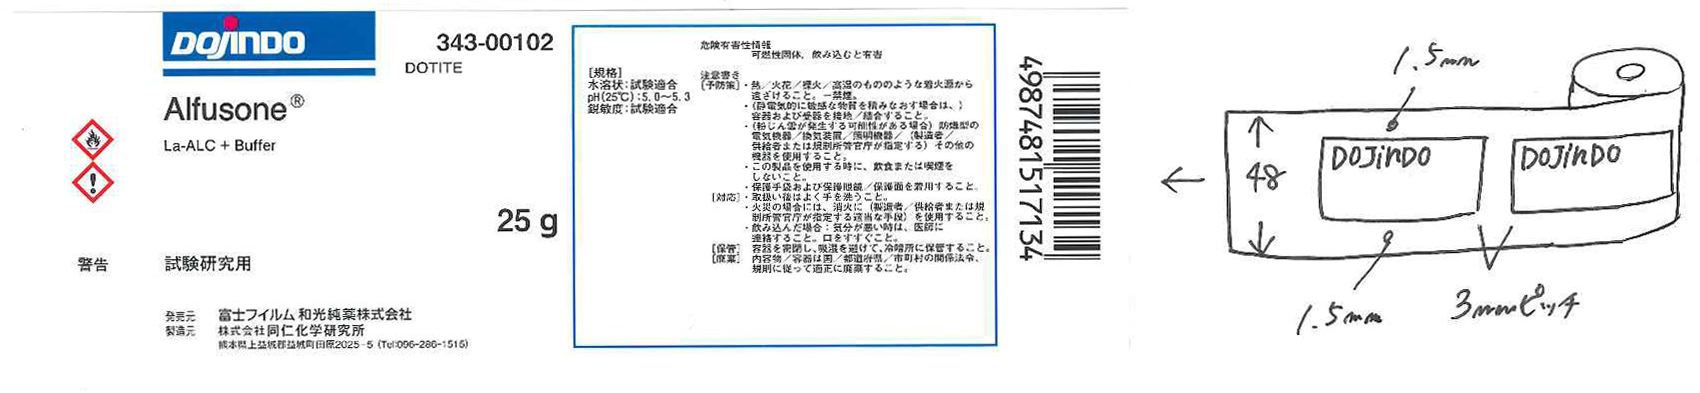 DOJINDO
343-00102
DOTITE
Alfusone®
La-ALC + Buffer
25 g
警告
試験研究用
発売元 富士フイルム 和光純薬株式会社
製造元 株式会社同仁化学研究所
熊本県上益城郡益城町田原2025-5 (Tel:096-286-1515)
[規格]
水溶状:試験適合
pH(25℃):5.0~5.3
鋭敏度:試験適合
危険有害性情報
可燃性固体, 飲み込むと有害
注意書き
[予防策]・熱/火花/裸火/高温のもののような着火源から
遠ざけること。ー禁煙。
・(静電気的に敏感な物質を積みなおす場合は、)
容器および受器を接地/結合すること。
・(粉じん雲が発生する可能性がある場合) 防爆型の
電気機器/換気装置/照明機器/ (製造者/
供給者または規制所管官庁が指定する) その他の
機器を使用すること。
・この製品を使用する時に、飲食または喫煙を
しないこと。
・保護手袋および保護眼鏡/保護面を着用すること。
[対応]・取扱い後はよく手を洗うこと。
・火災の場合には、消火に (製造者/供給者または規
制所管官庁が指定する適当な手段) を使用すること。
・飲み込んだ場合:気分が悪い時は、医師に
連絡すること。口をすすぐこと。
[保管] 容器を密閉し、吸湿を避けて、冷暗所に保管すること。
[廃棄] 内容物/容器は国/都道府県/市町村の関係法令、
規則に従って適正に廃棄すること。
4987481517134
1.5mm
48
DOJiNDO
DOJiNDO
1.5mm
3mmピッチ